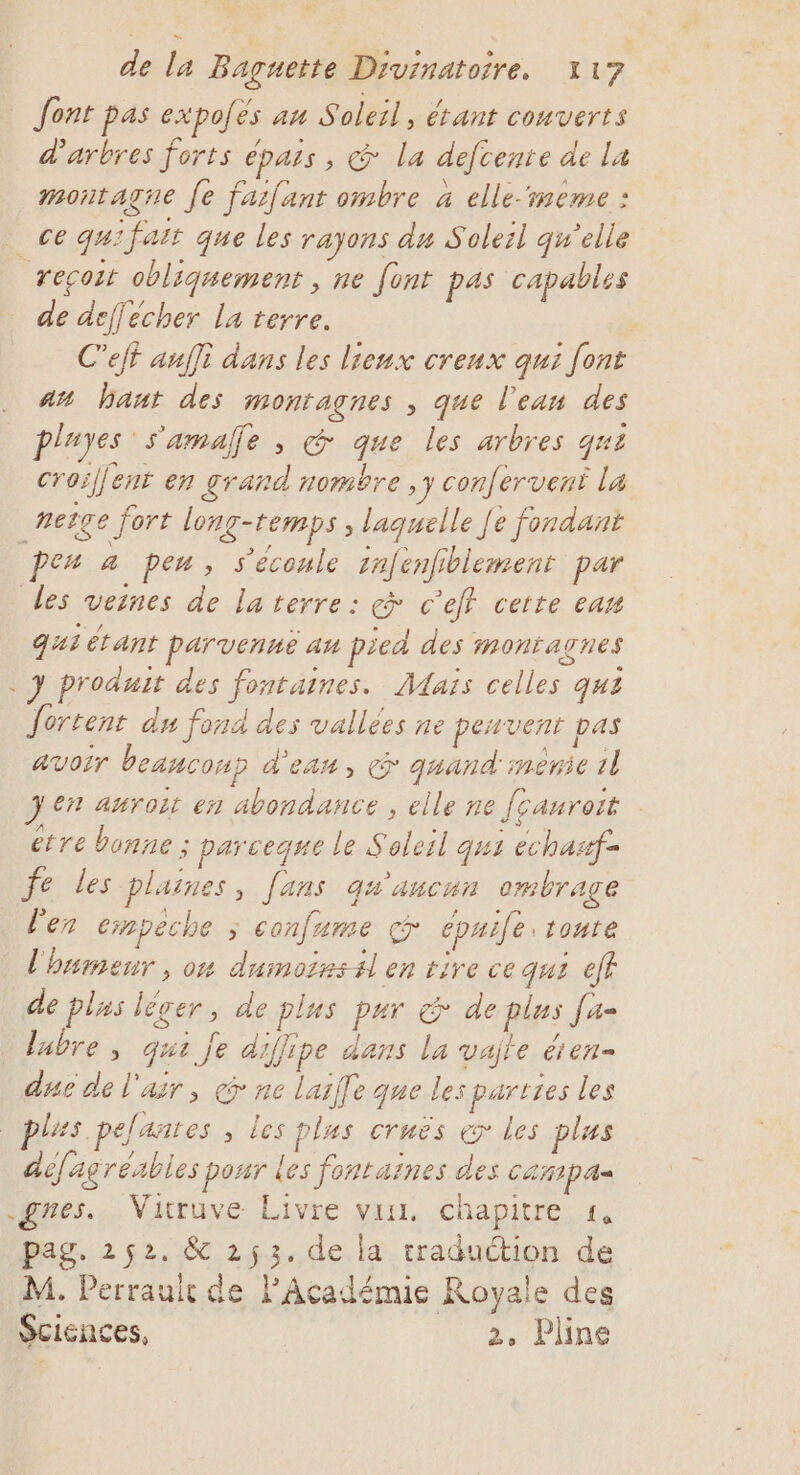 de la Baguette Divinatoire. 117
ſont pas expoſés au Soleil, étant couverts
d'arbres forts épais, & la deſcente de la
montagne ſe faiſant ombre à elle-même :
ce qui fait que les rayons du Soleil qu'elle
reçoit obliquement, ne ſont pas capables
de deſſécher la terre.
C'eſt auſſi dans les lieux creux qui ſont
au haut des montagnes, que l'eau des
pluyes s'amaſſe, & que les arbres qui
croiſſent en grand nombre, y conſervent la
neige fort long-temps, laquelle ſe fondant
peu à peu, s'écoule inſenſiblement par
les veines de la terre : & c'eſt cette eau
qui étant parvenuë au pied des montagnes
y produit des fontaines. Mais celles qui
ſortent du fond des vallées ne peuvent pas
avoir beaucoup d'eau, & quand même il
y en auroit en abondance, elle ne ſçauroit
être bonne ; parceque le Soleil qui échauf-
fe les plaines, ſans qu'aucun ombrage
l'en empêche ; conſume & épuiſe toute
l'humeur, ou dumoins il en tire ce qui eſt
de plus léger, de plus pur & de plus ſa-
lubre, qui ſe diſſipe dans la vaſte éten-
duë de l'air, & ne laiſſe que les parties les
plus peſantes, les plus cruës & les plus
déſagréables pour les fontaines des campa-
gnes. Vitruve Livre VIII. chapitre 1.
pag. 252. & 253. de la traduction de
M. Perrault de l'Académie Royale des
Sciences, 2. Pline